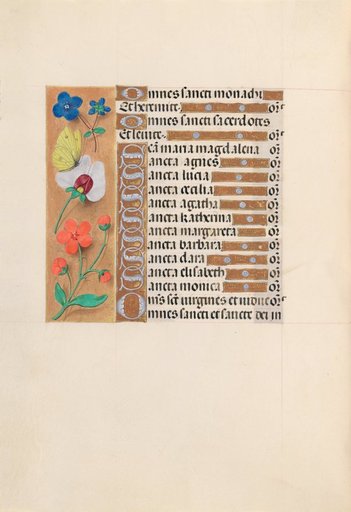 Omnes sancti monachi
Et heremite. or̄
Omnes sancti sacerdotes
Et leuite. or̄
Sc̄a maria magdalena or̄
Sancta agnes or̄
Sancta lucia or̄
Sancta cecilia or̄
Sancta agatha or̄
Sancta katherina or̄
Sancta margareta or̄
Sancta barbara or̄
Sancta clara or̄
Sancta elisabeth or̄
Sancta monica or̄
Om̄s sc̄e uirgines et uidue or̄
Omnes sancti et sancte dei in